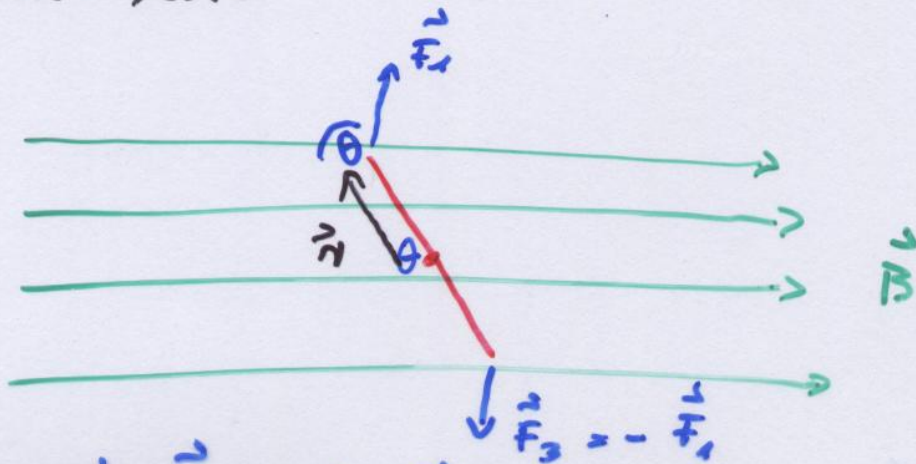 F⃗₁
θ
r⃗ θ
B⃗
F⃗₃ = - F⃗₁